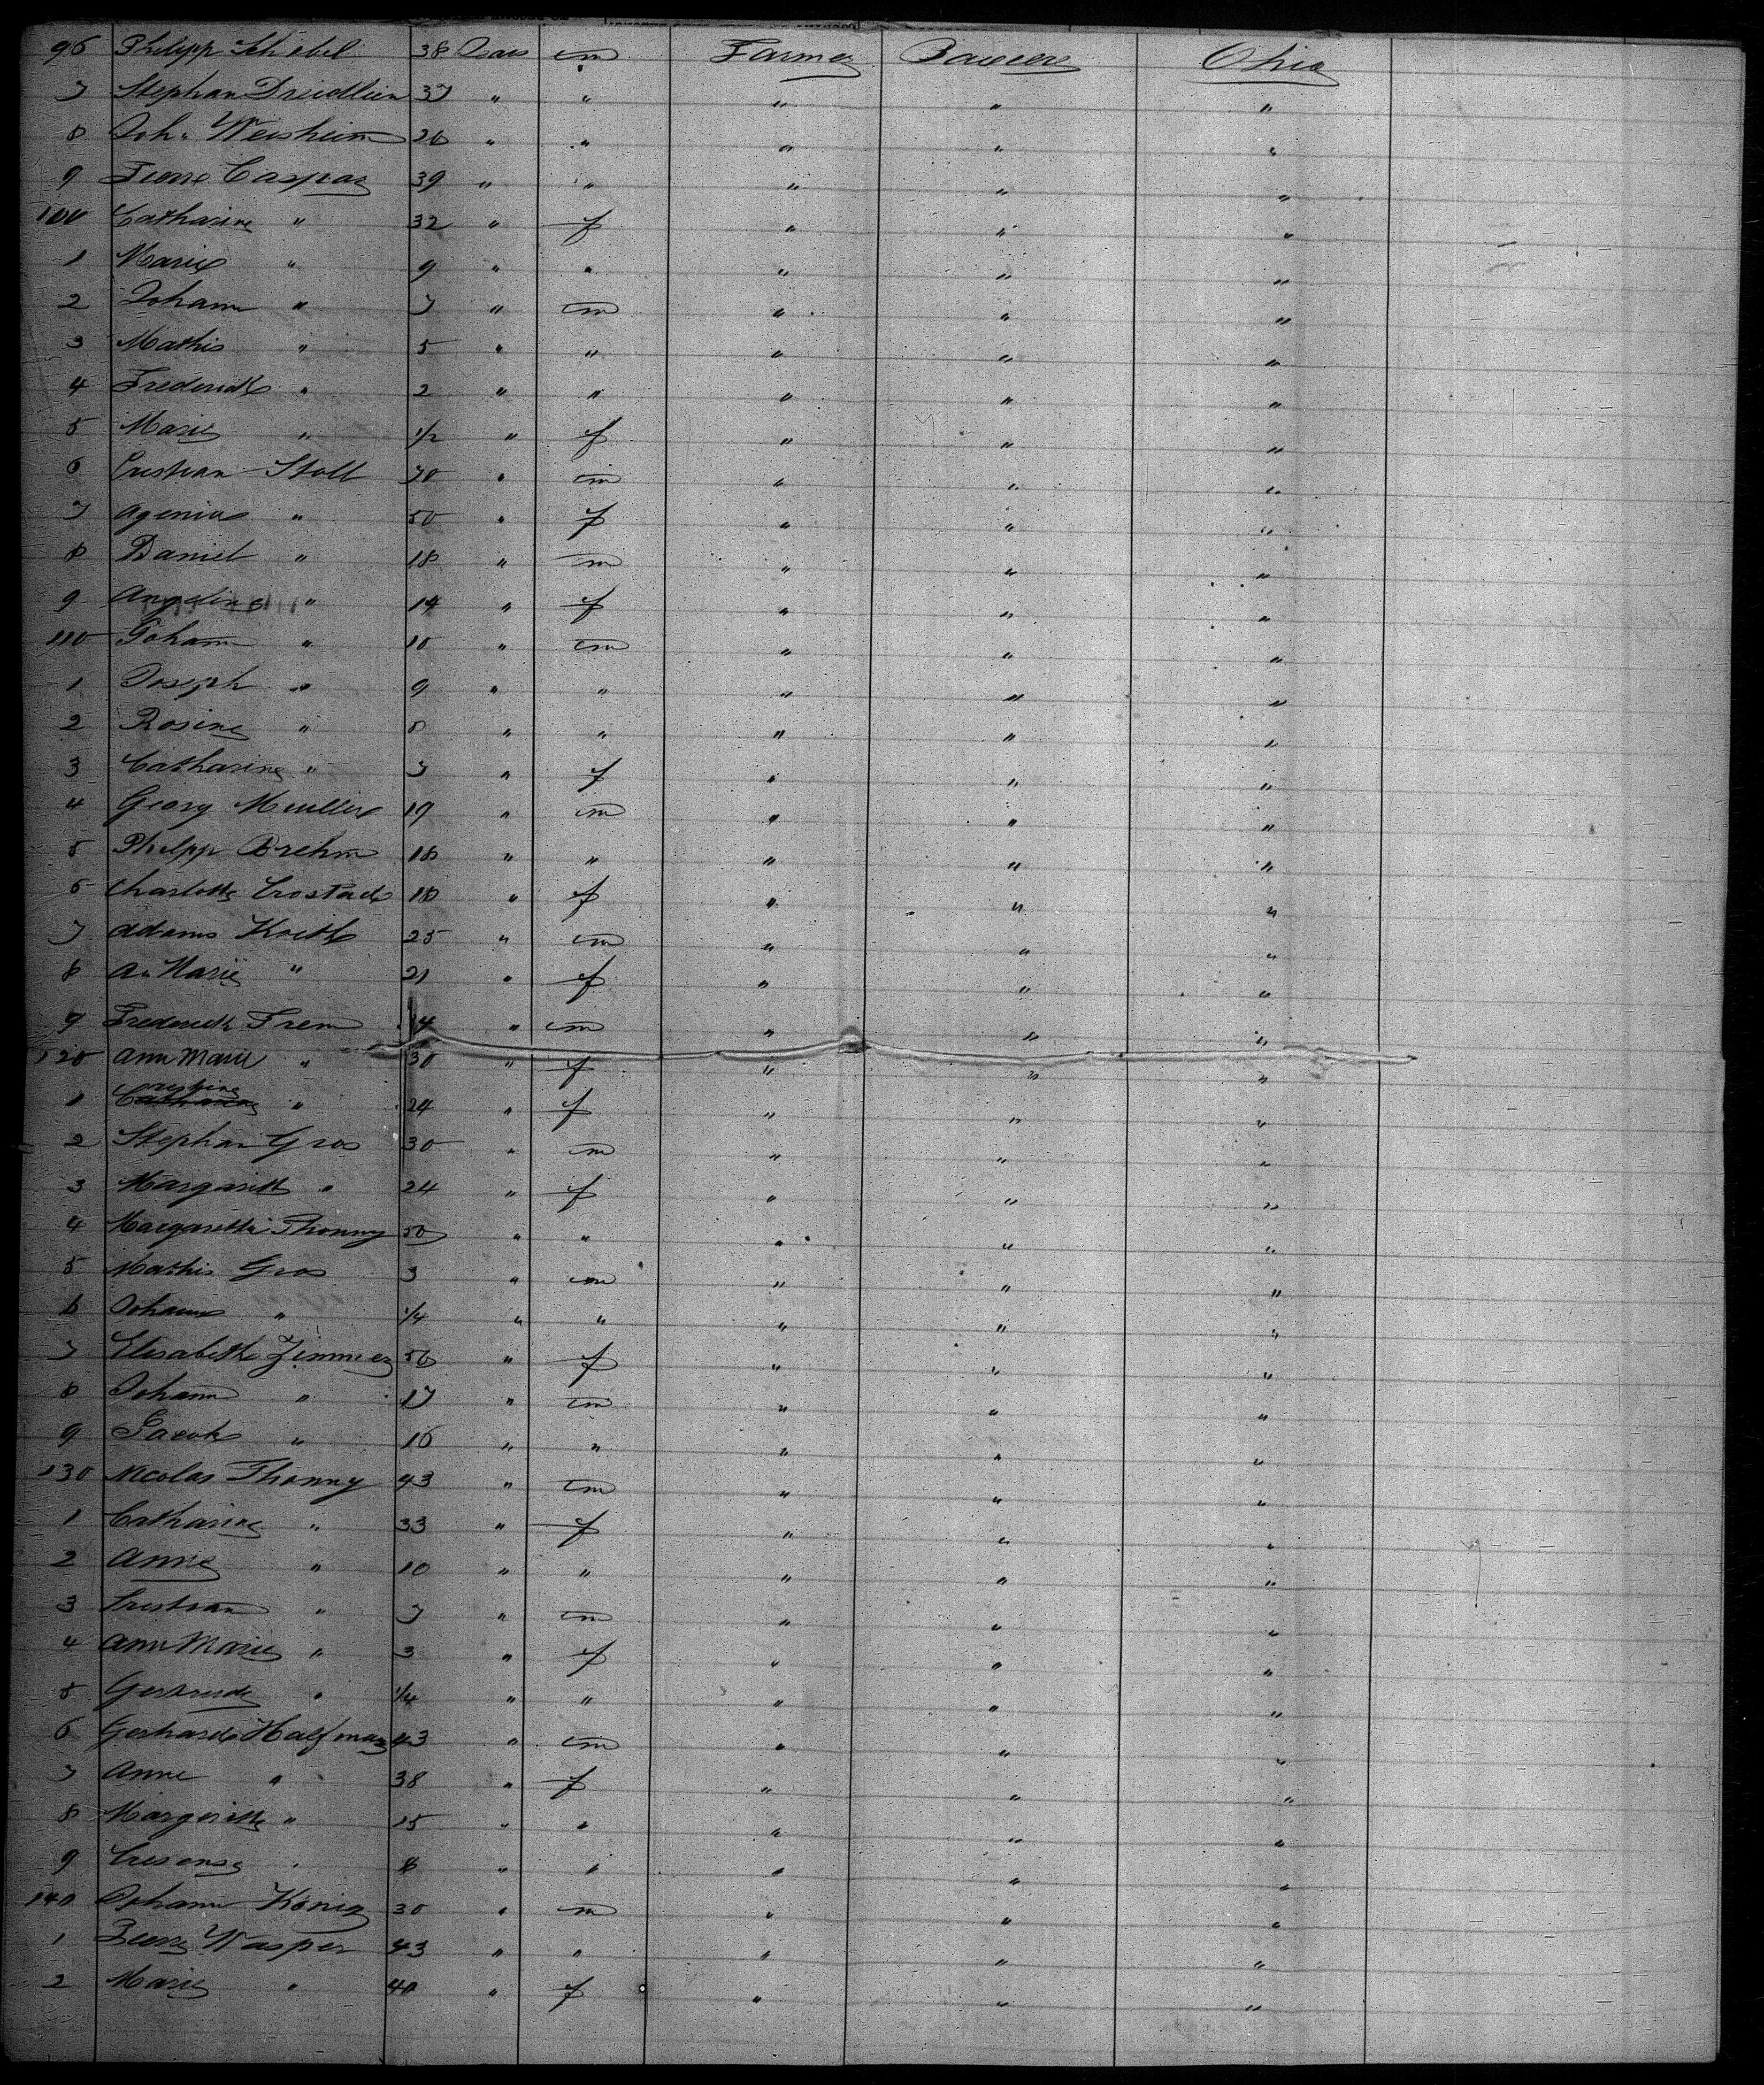 96 Philipp Schebel 38 Years m Farmer Baiern Ohio
7 Stephan Dreidlein 37 " " " " "
8 Joh. Weisheim 26 " " " " "
9 Pierre Caspar 39 " " " " "
100 Catharine " 32 " f " " "
1 Marie " 9 " " " " "
2 Johann " 7 " m " " "
3 Mathis " 5 " " " " "
4 Frederick " 2 " " " " "
5 Marie " 1/2 " f " " "
6 Cristian Stoll 70 " m " " "
7 Agenia " 50 " f " " "
8 Daniel " 18 " m " " "
9 Angeline " 14 " f " " "
110 Johann " 10 " m " " "
1 Joseph " 9 " " " " "
2 Rosine " 8 " " " " "
3 Catharine " 3 " f " " "
4 Georg Mueller 19 " m " " "
5 Philipp Brehm 18 " " " " "
6 Charlotte 18 " f " " "
7 Adams 25 " m " " "
8 A. Marie " 21 " f " " "
9 Frederick Frem 14 " m " " "
120 Ann Marie " 30 " f " " "
1 Cristine " 24 " f " " "
2 Stephan Gros 30 " m " " "
3 Margarett " 24 " f " " "
4 Margaretha Thonny 50 " " " " "
5 Mathis Gros 3 " m " " "
6 Johann " 1/4 " " " " "
7 Elisabeth Zimmer 56 " f " " "
8 Johann " 17 " m " " "
9 Jacob " 16 " " " " "
130 Nicolas Thonny 43 " m " " "
1 Catharine " 33 " f " " "
2 Anne " 10 " " " " "
3 Cristian " 7 " m " " "
4 Ann Marie " 3 " f " " "
5 Gertrude " 1/4 " " " " "
6 Gerhard Halfman 43 " m " " "
7 Anne " 38 " f " " "
8 Margerette " 15 " " " " "
9 " 8 " " " " "
140 Johann König 30 " m " " "
1 Pierre Wasper 43 " " " " "
2 Marie " 40 " f " " "